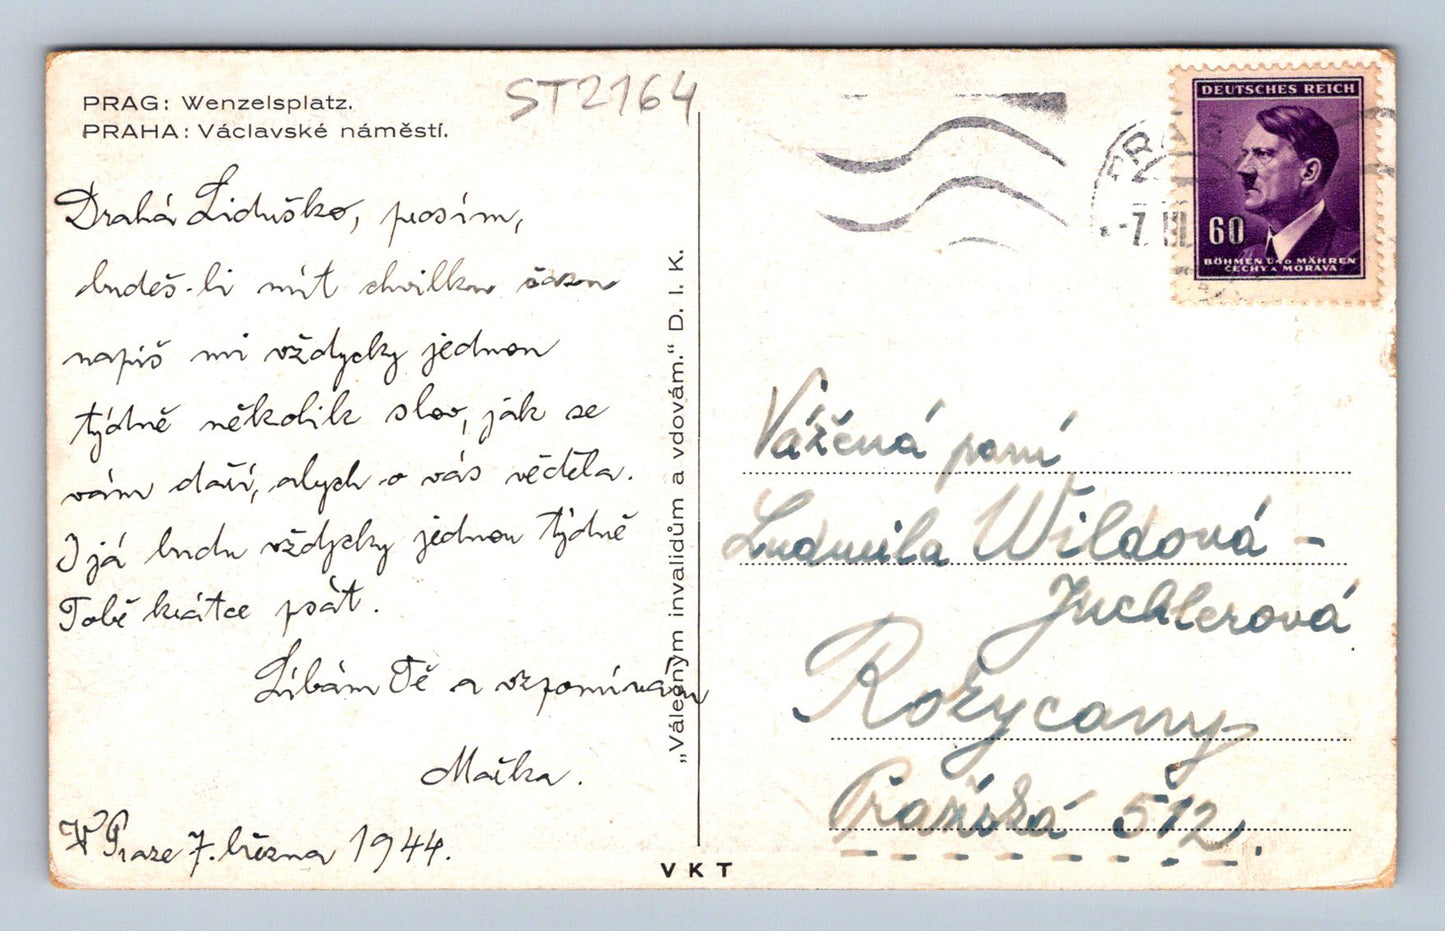 PRAG: Wenzelsplatz.
PRAHA: Václavské náměstí.
ST2164
Drahá Liduško, prosím,
budeš-li mít chvilku času
napiš mi vždycky jednou
týdně několik slov, jak se
vám daří, abych o vás věděla.
I já budu vždycky jednou týdně
Tobě krátce psát.
Líbám Tě a vzpomínám
Matka.
V Praze 7. března 1944.
„Válečným invalidům a vdovám.“ D. I. K.
VKT
PRAG
-7. III.
DEUTSCHES REICH
60
BÖHMEN UND MÄHREN
ČECHY A MORAVA
Vážená paní
Ludmila Wildová-
Juchlerová
Rokycany
Pražská 512.